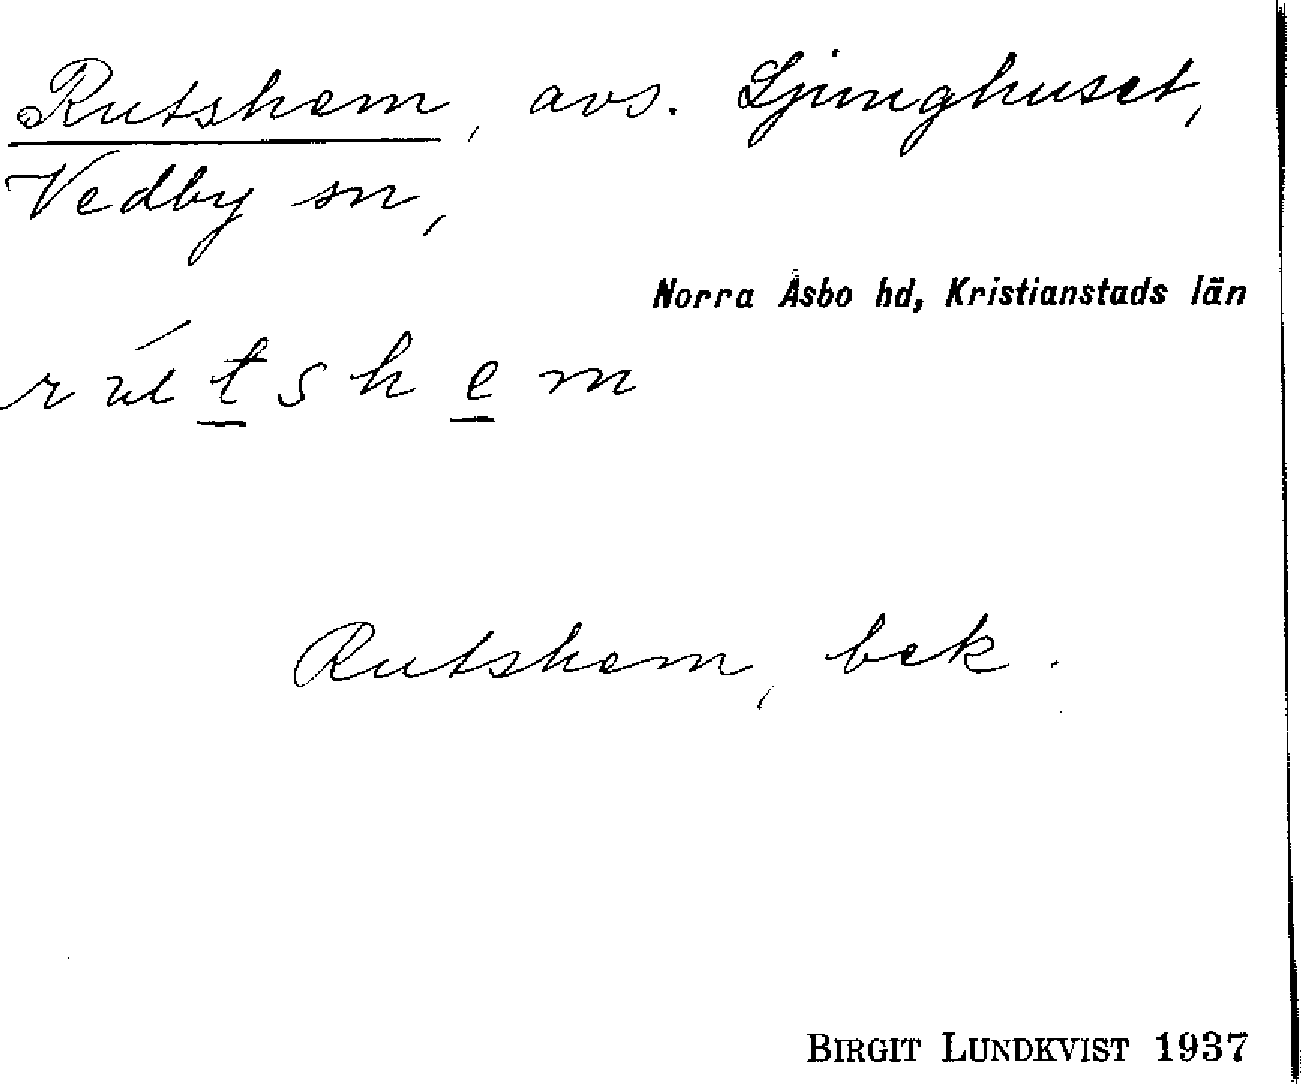 Rutshem, avs. Ljunghuset,
Vedby sn,
Norra Åsbo hd, Kristianstads län
rútshem
Rutshem, bek.
BIRGIT LUNDKVIST 1937